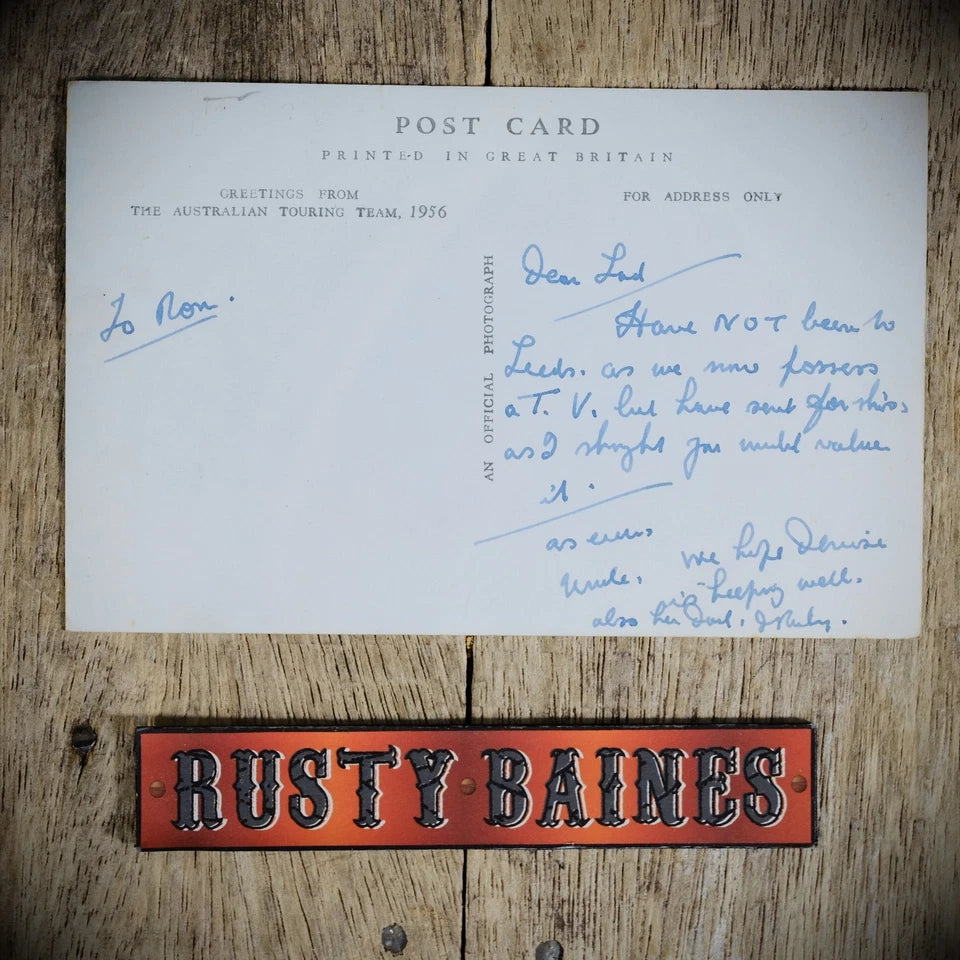 POST CARD
PRINTED IN GREAT BRITAIN
GREETINGS FROM
THE AUSTRALIAN TOURING TEAM, 1956
To Ron.
AN OFFICIAL PHOTOGRAPH
FOR ADDRESS ONLY
Dear Lad
Have NOT been to
Leeds. as we now possess
a T. V. but have sent for this.
as I thought you would value
it.
as ever
Uncle.
We hope Denise
is keeping well.
also her Dad.
RUSTY BAINES